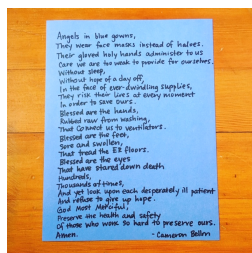 Angels in blue gowns,
They wear face masks instead of haloes.
Their gloved holy hands administer to us
Care we are too weak to provide for ourselves.
Without sleep,
Without hope of a day off,
In the face of ever-dwindling supplies,
They risk their lives at every moment
In order to save ours.
Blessed are the hands,
Rubbed raw from washing,
That connect us to ventilators.
Blessed are the feet,
Sore and swollen,
That tread the ER floors.
Blessed are the eyes
That have stared down death
Hundreds,
Thousands of times,
And yet look upon each desperately ill patient
And refuse to give up hope.
God Most Merciful,
Preserve the health and safety
Of those who work so hard to preserve ours.
Amen. - Cameron Bellm